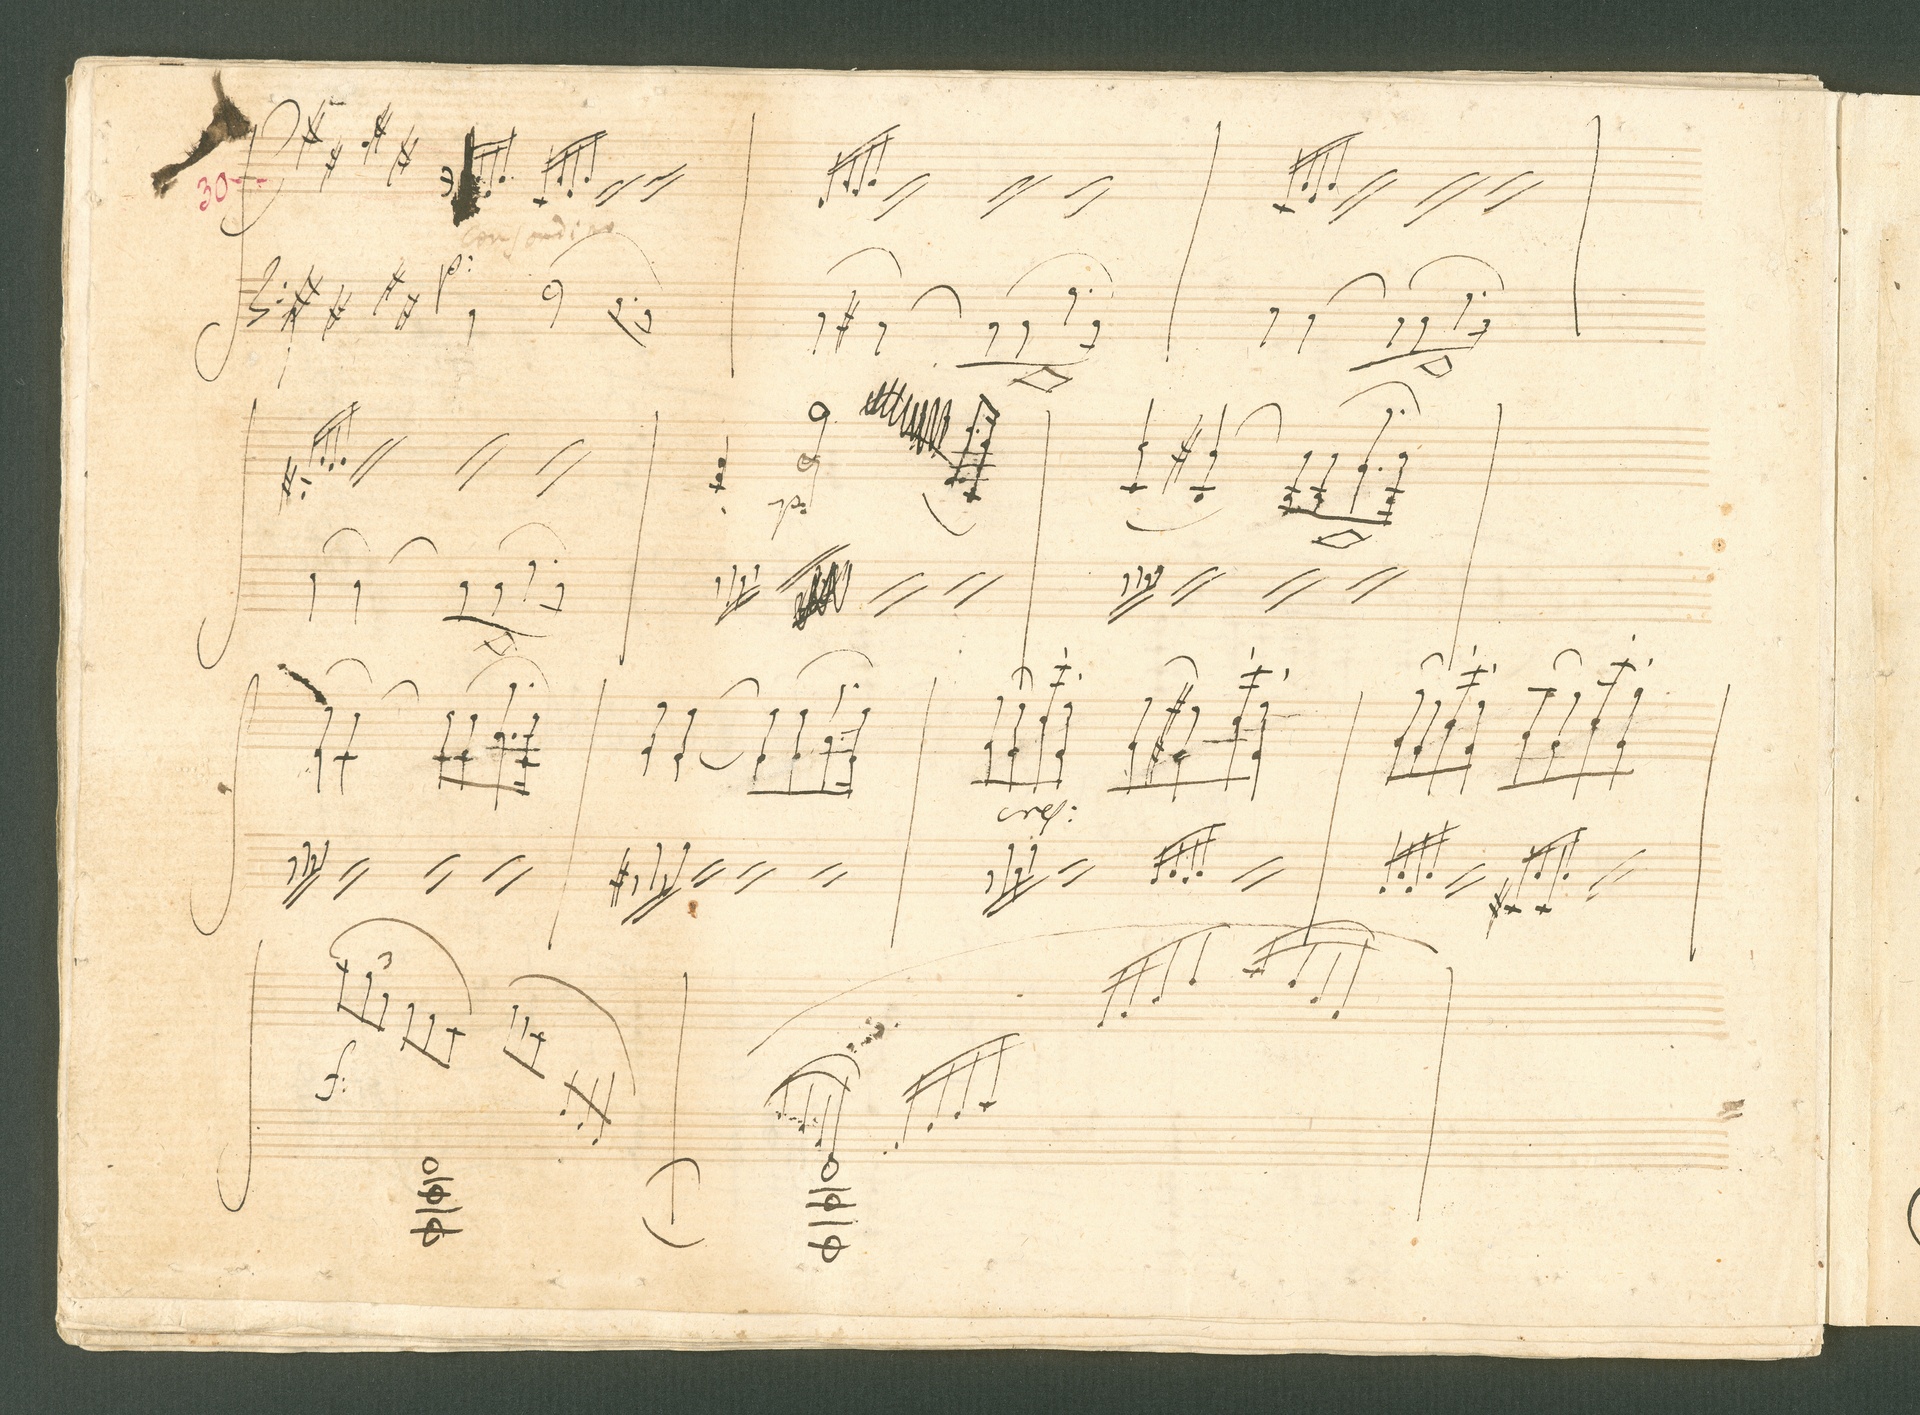 30
con sordino
p:
p:
cres:
f: